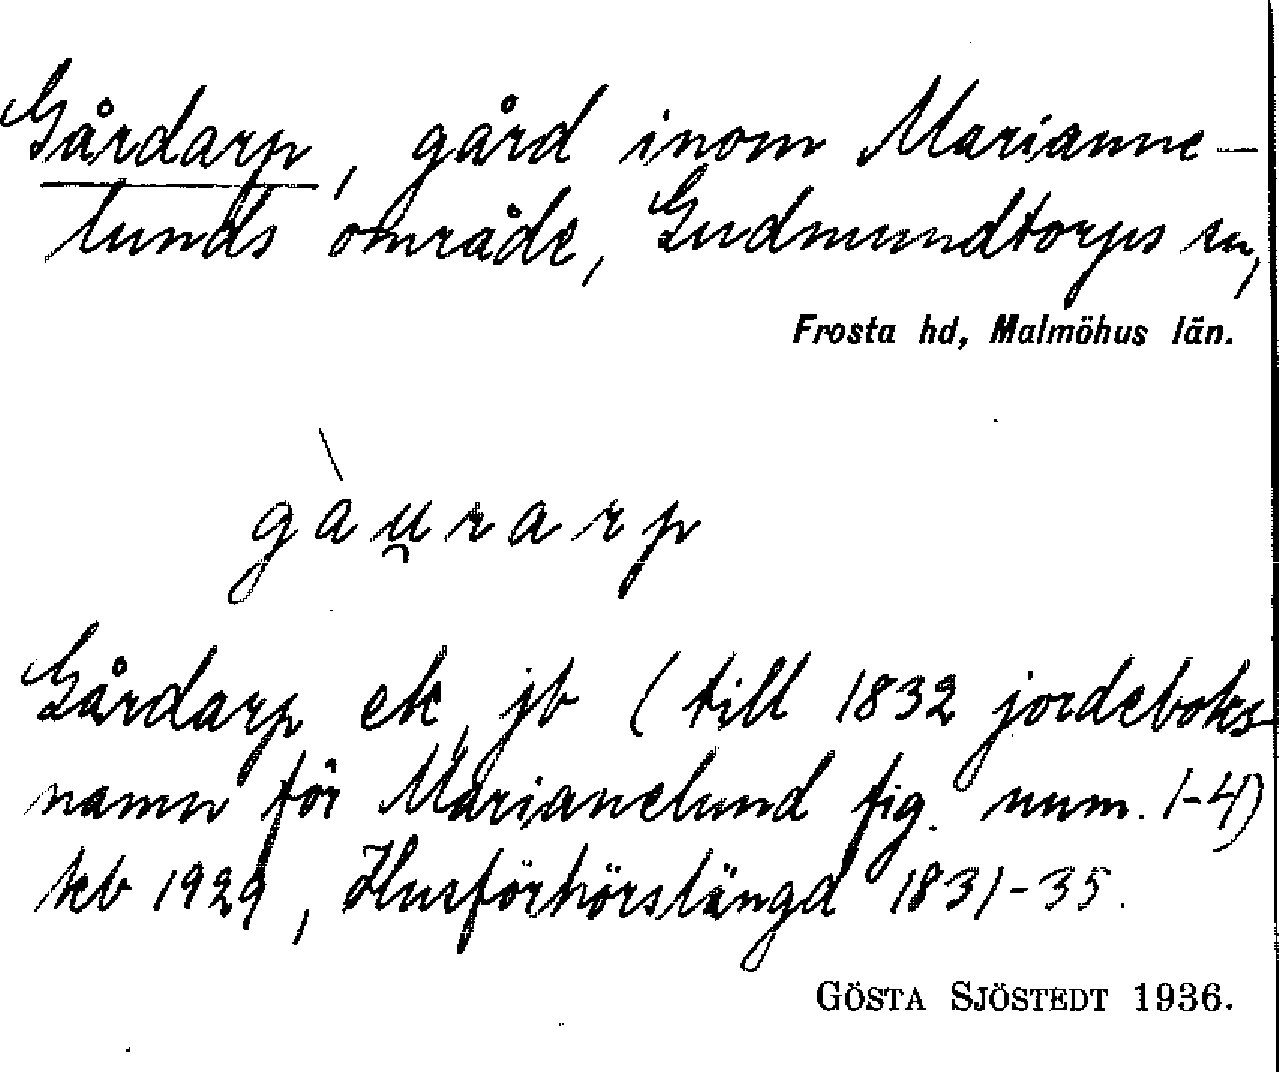 Gårdarp, gård inom Marianne-
lunds område, Gudmundtorps sn,
Frosta hd, Malmöhus län.
gàu̯rarp
Gårdarp ek, jb (till 1832 jordeboks
namn för Marianelund fig. num. 1-4)
kb 1929, Husförhörslängd 1831-35.
GÖSTA SJÖSTEDT 1936.